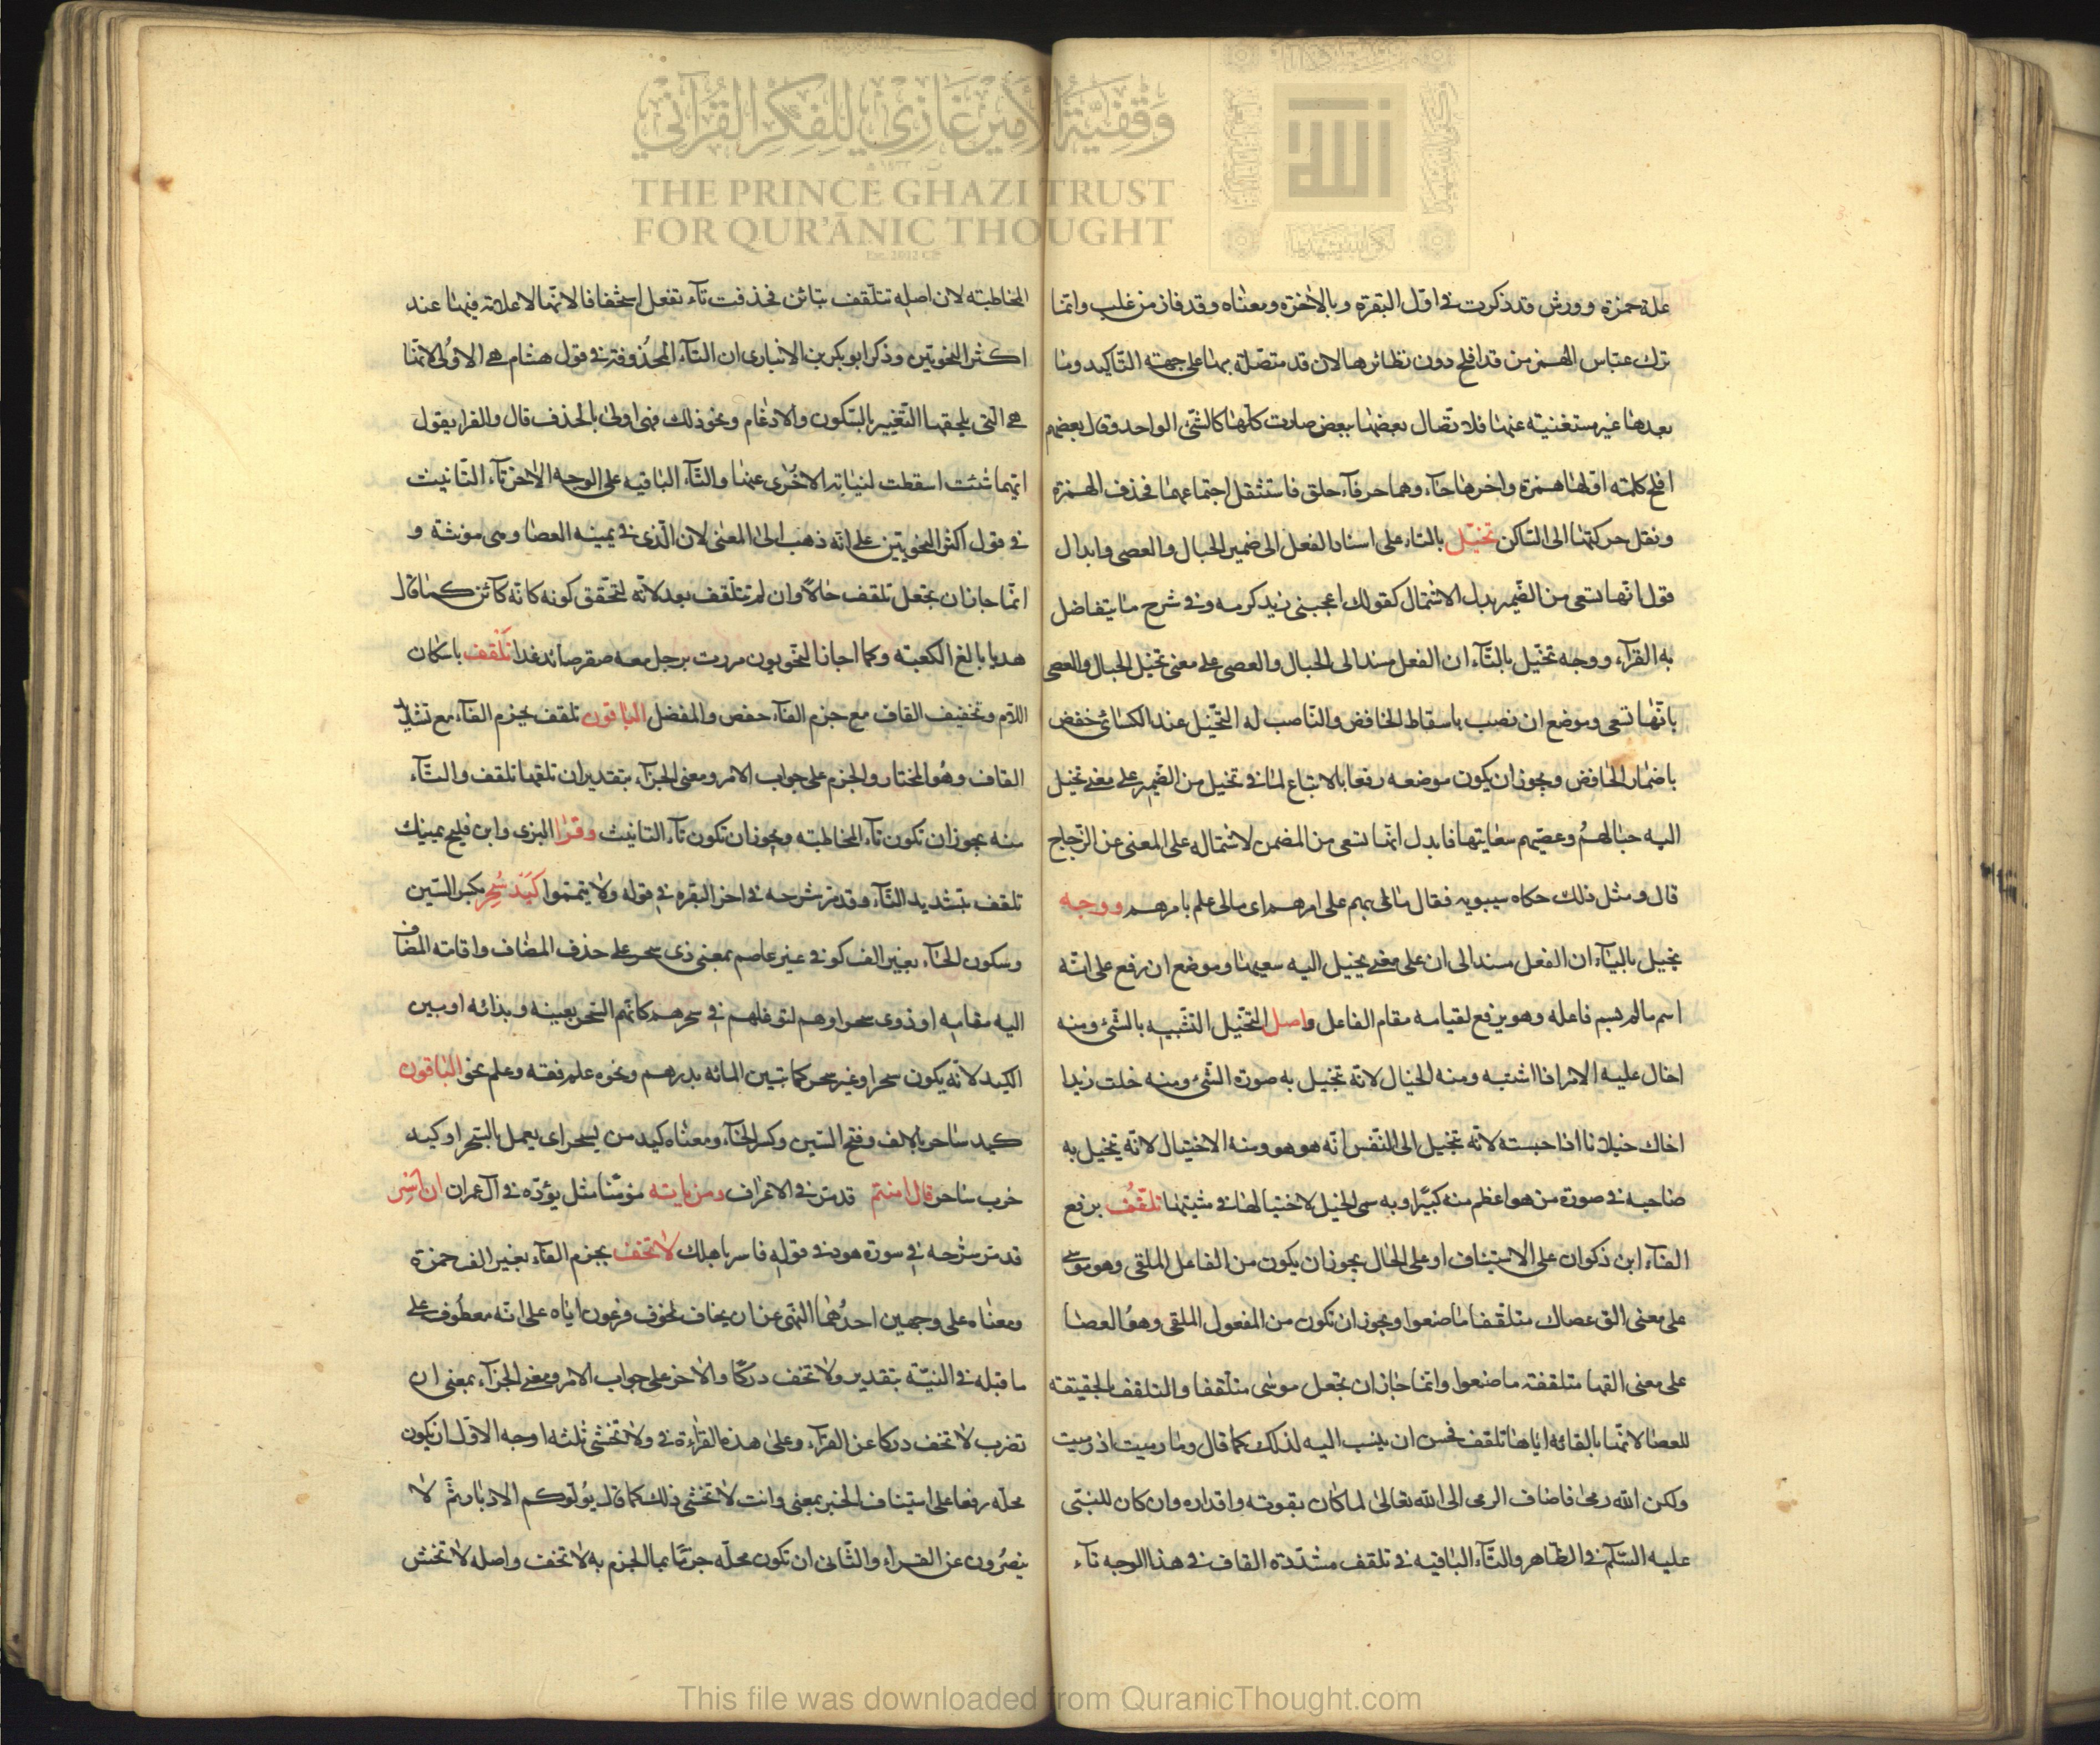 وقفية الأمير غازي للفكر القرآني
THE PRINCE GHAZI TRUST
FOR QUR'ĀNIC THOUGHT
Est. 2012 CE
علة حمزة وورش قد ذكرت في اول البقرة وبالاخرة ومعناه وقد فاز من غلب وانما
ترك عباس الهمز من قد افلح دون نظائرها لان قد متصلة بها على جهته التاكيد وما
بعدها غير مستغنية عنها فلاتصال بعضها ببعض صارت كلها كالشئ الواحد وقال بعضهم
افلح كلمة اولها همزة واخرها حآء وهما حرفآء حلق فاستثقل اجتماعهما فحذف الهمزة
ونقل حركتها الى الساكن تخيل بالتاء على اسناد الفعل الى ضمير الحبال والعصى وابدال
قول انها تسعى من الضمير بدل الاشتمال كقولك اعجبنى زيد كرمه وفي شرح ما يتفاضل
به القرآء ووجه تخيل بالتآء ان الفعل مسند الى الحبال والعصى على معنى تخيل الحبال والعصى
بانها تسعى وموضع ان نصب باسقاط الخافض والناصب له التخيل عند الكسائى خفض
باضمار الخافض ويجوز ان يكون موضعه رفعا بالاتباع لما في تخيل من الضمير على معنى تخيل
اليه حبالهم وعصيهم سعايتها فابدل انما تسعى من المضمر لاشتماله على المعنى عن الزجاج
قال ومثل ذلك حكاه سيبويه فقال مالى بهم على امرهم اى مالى علم بامرهم ووجه
يخيل باليآء ان الفعل مسند الى ان على معنى يخيل اليه سعيها وموضع ان رفع على انه
اسم مالم يسم فاعله وهو يرفع لقيامه مقام الفاعل واصل التخيل التشبيه بالشئ ومنه
اخال عليه الامر اذا اشتبه ومنه الخيال لانه تخيل به صورة الشئ ومنه خلت زيدا
اخاك خيلانا اذا حسبته لانه تخيل الى النفس انه هو هو ومنه الاختيال لانه يتخيل به
صاحبه في صورة من هو اعظم منه كبيرا وبه سمى الخيل لاختيالها في مشيتها تلقف برفع
الفآء ابن ذكوان على الاستيناف او على الحال يجوز ان يكون من الفاعل الملقى وهو موسى
على معنى الق عصاك متلقفا ما صنعوا ويجوز ان تكون من المفعول الملقى وهو العصا
على معنى القها متلقفة ما صنعوا وانما جاز ان تجعل موسى متلقفا والتلقف الحقيقة
للعصا لانها بالقائه اياها تلقف فحسن ان ينسب اليه لذلك كما قال وما رميت اذ رميت
ولكن الله رمى فاضاف الرمى الى الله تعالى لما كان بقوته واقداره وان كان للنبى
عليه السلم في الظاهر والتآء الباقيه في تلقف مشددة القاف في هذا الوجه تآء
المخاطبته لان اصله تتلقف بتائن فحذفت تآء تفعل استخفافا لانها لا علامة فيها عند
اكثر النحويين وذكر ابو بكر بن الانبارى ان التآء المحذوفة في قول هشام هى الاولى لانها
هى التى يلحقها التغيير بالسكون والادغام ونحو ذلك فهى اولى بالحذف قال والفرا يقول
ايتهما شئت اسقطت لنيابة الاخرى عنها والتآء الباقيه على الوجه الاخر تآء التانيث
في قول اكثر النحويين على انه ذهب الى المعنى لان الذى في يمينه العصا وهى مونثة و
انما جاز ان تجعل تلقف حالا وان لم تتلقف بعد لانه لتحقق كونه كانه كآئن كما قال
هديا بالغ الكعبة وكما اجاز النحويون مررت برجل معه صقر صائد غدا تلقف باسكان
اللام وتخفيف القاف مع جزم الفآء حفص والمفضل الباقون تلقف بجزم الفآء مع تشديد
القاف وهو المختار والجزم على جواب الامر ومعنى الجزآء بتقدير ان تلقها تلقف والتآء
منه يجوز ان تكون تآء المخاطبته ويجوز ان تكون تآء التانيث وقرا البزى وابن فليح يمينك
تلقف بتشديد التآء وقد مر شرحه في اخر البقره في قوله ولا تيمموا كيد سحر بكسر السين
وسكون الحآء بغير الف كوفي غير عاصم بمعنى ذى سحر على حذف المضاف واقامة المضاف
اليه مقامه او ذوى سحر او هم لتوغلهم في سحرهم كانهم السحر بعينه وبذاته او بين
الكيد لانه يكون سحرا وغير سحر كما تبين المائه بدرهم ونحوه علم فقه وعلم نحو الباقون
كيد ساحر بالالف وفتح السين وكسر الحآء ومعناه كيد من يسحر اى يعمل السحر او كيد
ضرب ساحر قال امنتم قد مر في الاعراف ومن ياته مؤمنا مثل يؤده في آل عمران ان اسر
قد مر شرحه في سورة هود في قوله فاسر باهلك لا تخف بجزم الفآء بغير الف حمزة
ومعناه على وجهين احدهما النهى عن ان يخاف لخوف فرعون اياه على انه معطوف على
ما قبله في النية بتقدير ولا تخف دركا والاخر على جواب الامر ومعنى الجزآء بمعنى ان
تضرب لا تخف دركا عن الفرآء وعلى هذه القرآءة في ولا تخشى ثلثه اوجه الاول ان يكون
محله رفعا على استيناف الخبر بمعنى وانت لا تخشى ذلك كما قال يولوكم الادبار ثم لا
ينصرون عن الفراء والثانى ان تكون محله جزما بما الجزم به لا تخف واصله لا تخش
This file was downloaded from QuranicThought.com